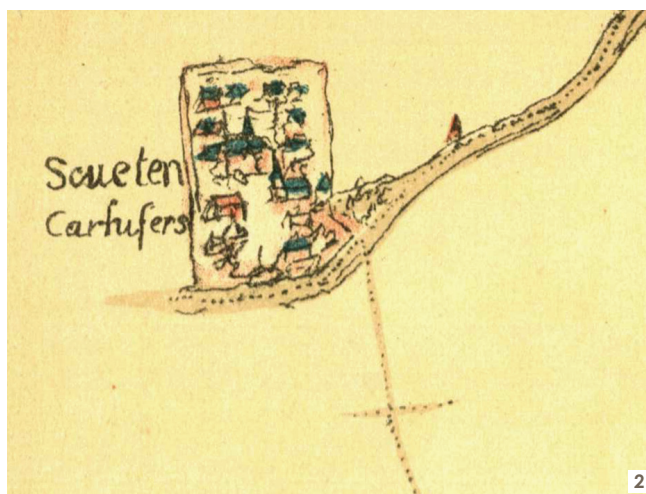 Scueten
Cartusers
2